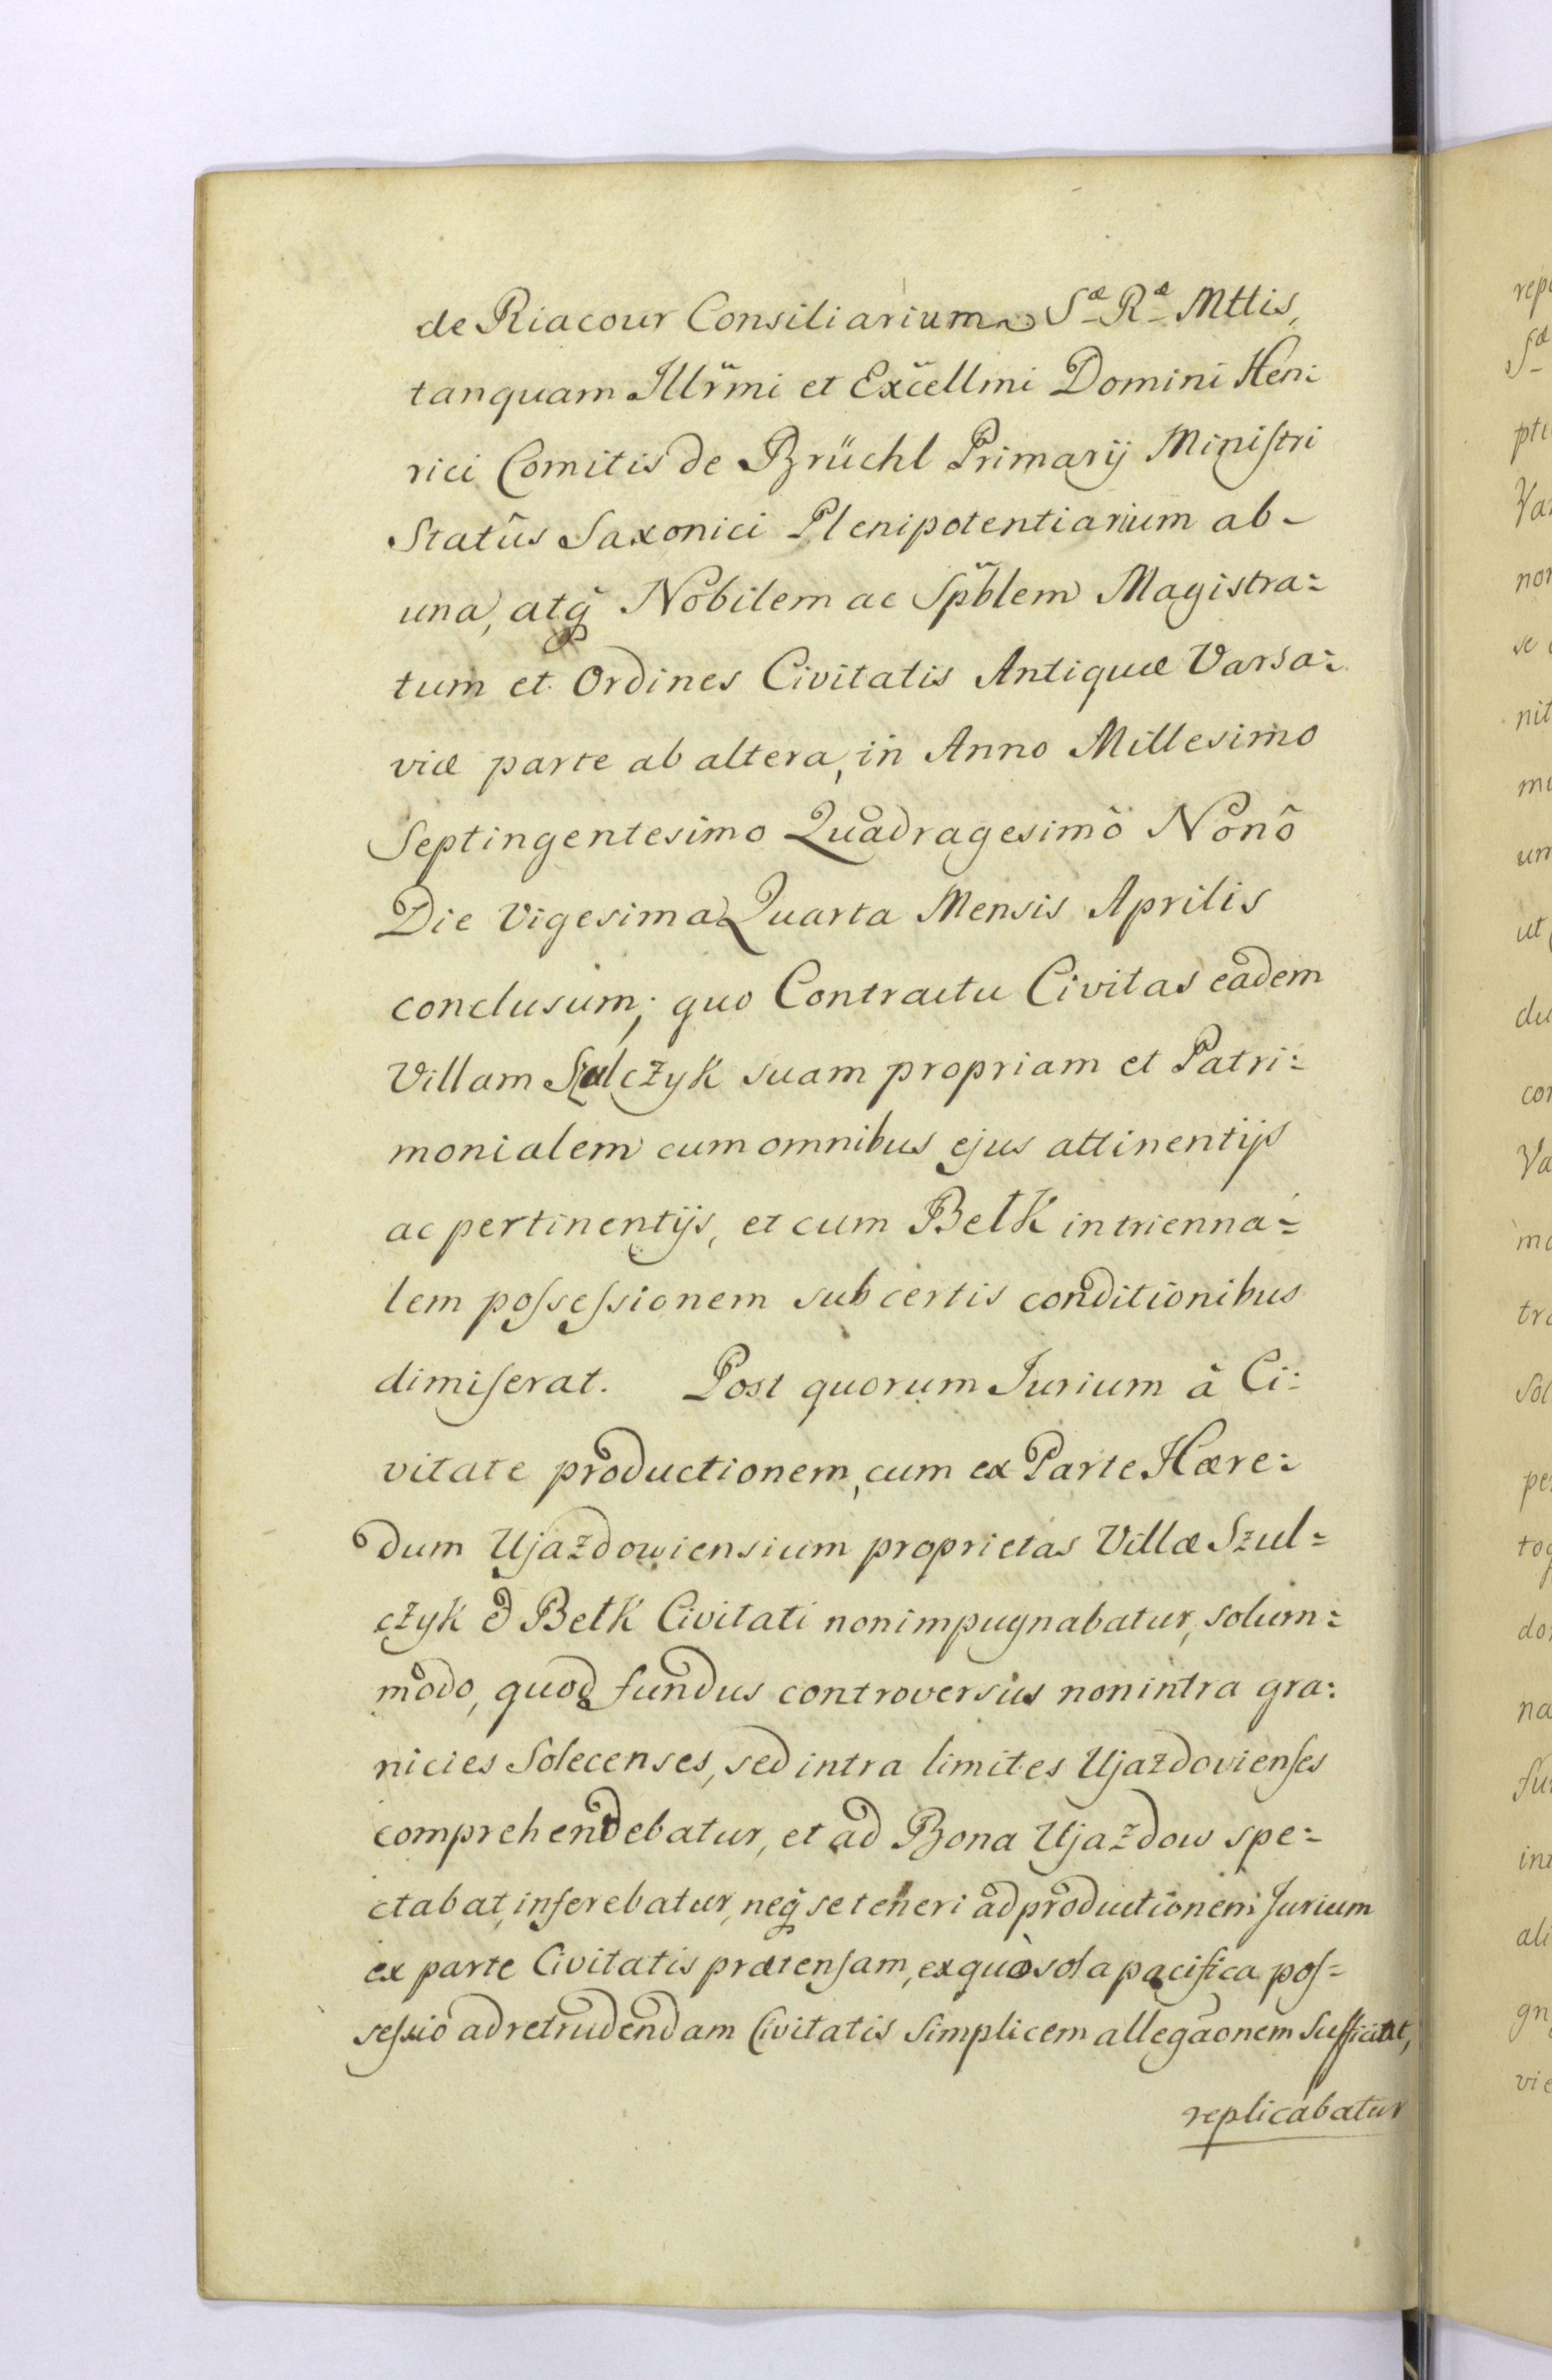 de Riacour Consiliarium Sæ Ræ Mttis,
tanquam Illr̃mi et Exc̃ellmi Domini Hen:
rici Comitis de Brüchl Primarij Miniſtri
Statûs Saxonici Plenipotentiarium ab-
una, atq̃ Nobilem ac Sp̃blem Magistra=
tum et Ordines Civitatis Antiquæ Varsa=
viæ parte ab altera, in Anno Millesimo
Septingentesimo Quadragesimô Nonô
Die Vigesima Quarta Mensis Aprilis
conclusum; quo Contractu Civitas eadem
Villam Szulczyk suam propriam et Patri=
monialem cum omnibus ejus attinentijs
ac pertinentijs, et cum Bełk in trienna=
lem poſseſsionem sub certis conditionibus
dimiſerat. Post quorum Jurium à Ci:
vitate productionem, cum ex Parte Hære:
dum Ujazdowiensium proprietas Villæ Szul=
czyk & Bełk Civitati non impugnabatur, solum=
modo, quod fundus controversus non intra gra:
nicies Solecenses, sed intra limites Ujazdovienſes
comprehendebatur, et ad Bona Ujazdow spe=
ctabat, inferebatur, neq̃ se teneri ad productionem Jurium
ex parte Civitatis prætenſam, ex quò sola pacifica poſ=
seſsio ad retrudendam Civitatis Simplicem allegãonem Sufficiat,
replicabatur
repl
Sæ
pti
Var
non
se
nit
mi
um
ut
du
con
Va
ma
tra
Sol
per
tog
dor
na
fun
int
ali
gn
vie